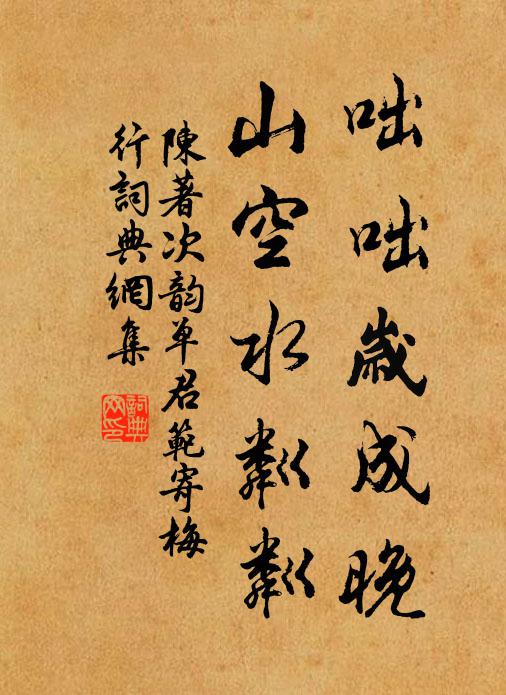 咄咄歲成晚
山空水粼粼
陳著次韵单君範寄梅
行詞典網集
詞典
网印